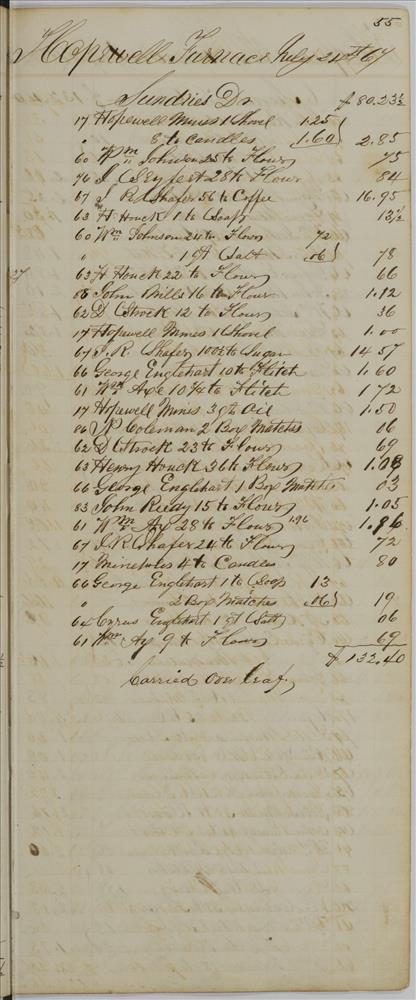 55
Hopewell Furnace July 24th 67
Sundries Dr $ 80.23½
17 Hopewell Mines 1 Shovel 1.25
" 8 lb Candles 1.60 2.85
60 Wm Johnson 25 lb Flour 75
76 28 lb Flour 84
67 J R Shafer 56 lb Coffee 16.95
63 H Houck 1 lb Soap 12½
60 Wm Johnson 24 lb Flour 72
" 1 qt Salt .06 78
27 63 H Houck 22 lb Flour 66
58 John Mills 16 lb Flour 1.12
62 D Strock 12 lb Flour 36
17 Hopewell Mines 1 Shovel 1.00
67 J. R. Shafer 100½ lb Sugar 14 57
66 George Englehart 10 lb Flitch 1.60
61 Wm Axe 10¾ lb Flitch 1 72
17 Hopewell Mines 3 qts Oil 1.50
06 N Coleman 2 Box Matches 06
62 D Strock 23 lb Flour 69
63 Henry Houck 36 lb Flour 1.08
66 George Englehart 1 Box Matches 03
83 John Reedy 15 lb Flour 1.05
61 Wm Ax 28 lb Flour 1.96 1.96
67 J. R. Shafer 24 lb Flour 72
17 Mineholes 4 lb Candles 80
66 George Englehart 1 lb Soap 13
" 2 Box Matches .06 19
64 Cyrus Englehart 1 qt Salt 06
61 Wm Ax 9 lb Flour 69
$ 132.40
Carried Over leaf,